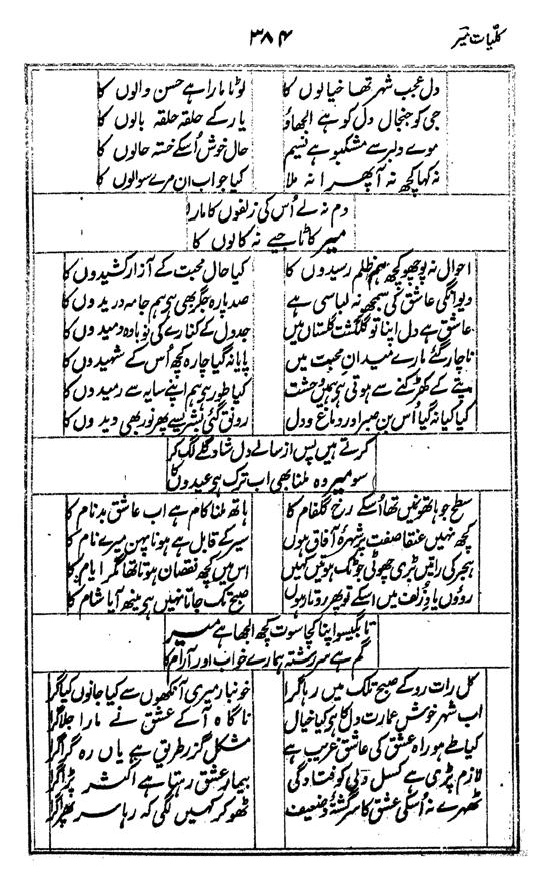 کلیات میر
۳۸۴
دل عجب شہر تھا خیالوں کا لوٹا مارا ہے حسن والوں کا
جی کو جنجال دل کو ہے الجھاؤ یار کے حلقہ حلقہ بالوں کا
موے دلبر سے مشکبو ہے نسیم حال خوش اُسکے خستہ حالوں کا
نہ کہا کچھ نہ آ پھر ا نہ ملا کیا جواب ان مرے سوالوں کا
دم نہ لے اُس کی زلفوں کا مارا
میر کاٹا جیے نہ کالوں کا
احوال نہ پوچھو کچھ ہم ظلم رسیدوں کا کیا حال محبت کے آزار کشیدوں کا
دیوانگی عاشق کی سمجھ نہ لباسی ہے صد پارہ جگر بھی ہے ہم جامہ دریدوں کا
عاشق ہے دل اپنا تو گلگشت گلستاں میں جدول کے کنارے کی نوبادہ دمیدوں کا
ناچار گئے مارے میدان محبت میں پایا نہ گیا چارہ کچھ اُس کے شہیدوں کا
پتے کے کھڑکنے سے ہوتی ہے ہمیں وحشت کیا طور ہے ہم اپنے سایہ سے رمیدوں کا
کیا کیا نہ گیا اُس بن صبر اور دماغ و دل رونق گئی بشرے سے پھر نور بھی دیدوں کا
کرتے ہیں پس از سالے دل شاد گلے لگ کر
سو میر وہ ملنا بھی اب ترک ہے عیدوں کا
سطح جو ہاتھوں میں تھا اُسکے رخ گلفام کا ہاتھ ملنا کام ہے اب عاشق بدنام کا
کچھ نہیں عنقا صفت پر شہرۂ آفاق ہوں سیر کے قابل ہے ہونا پہن میرے نام کا
ہجر کی راتیں بڑی چھوٹی جو ٹک ہوتیں کہیں اس میں کچھ نقصان ہوتا تھا مگر ایام کا
روؤں یاد زلف میں اسکے تو پھر روتا رہوں صبح تک جاتا نہیں ہے مینھ آیا شام کا
تا بگیسو اپنا کچا سوت کچھ الجھا ہے میر
گم ہے سررشتہ ہمارے خواب اور آرام کا
کل رات رو کے صبح تلک میں رہا گرا خونبار میری آنکھوں سے کیا جانوں کیا گرا
اب شہر خوش عمارت دل کا ہے کیا خیال ناگاہ آ کے عشق نے مارا جلا گرا
کیا طے ہو راہ عشق کی عاشق غریب ہے مشکل گزر طریق ہے یاں رہ گرا گرا
لازم پڑی ہے کسل دلی کو فتادگی بیمار عشق رہتا ہے اکثر پڑا گرا
ٹھہرے نہ اُسکی عشق کا سرگشتہ و ضعیف ٹھوکر کہیں لگی کہ رہا سر پھرا گرا